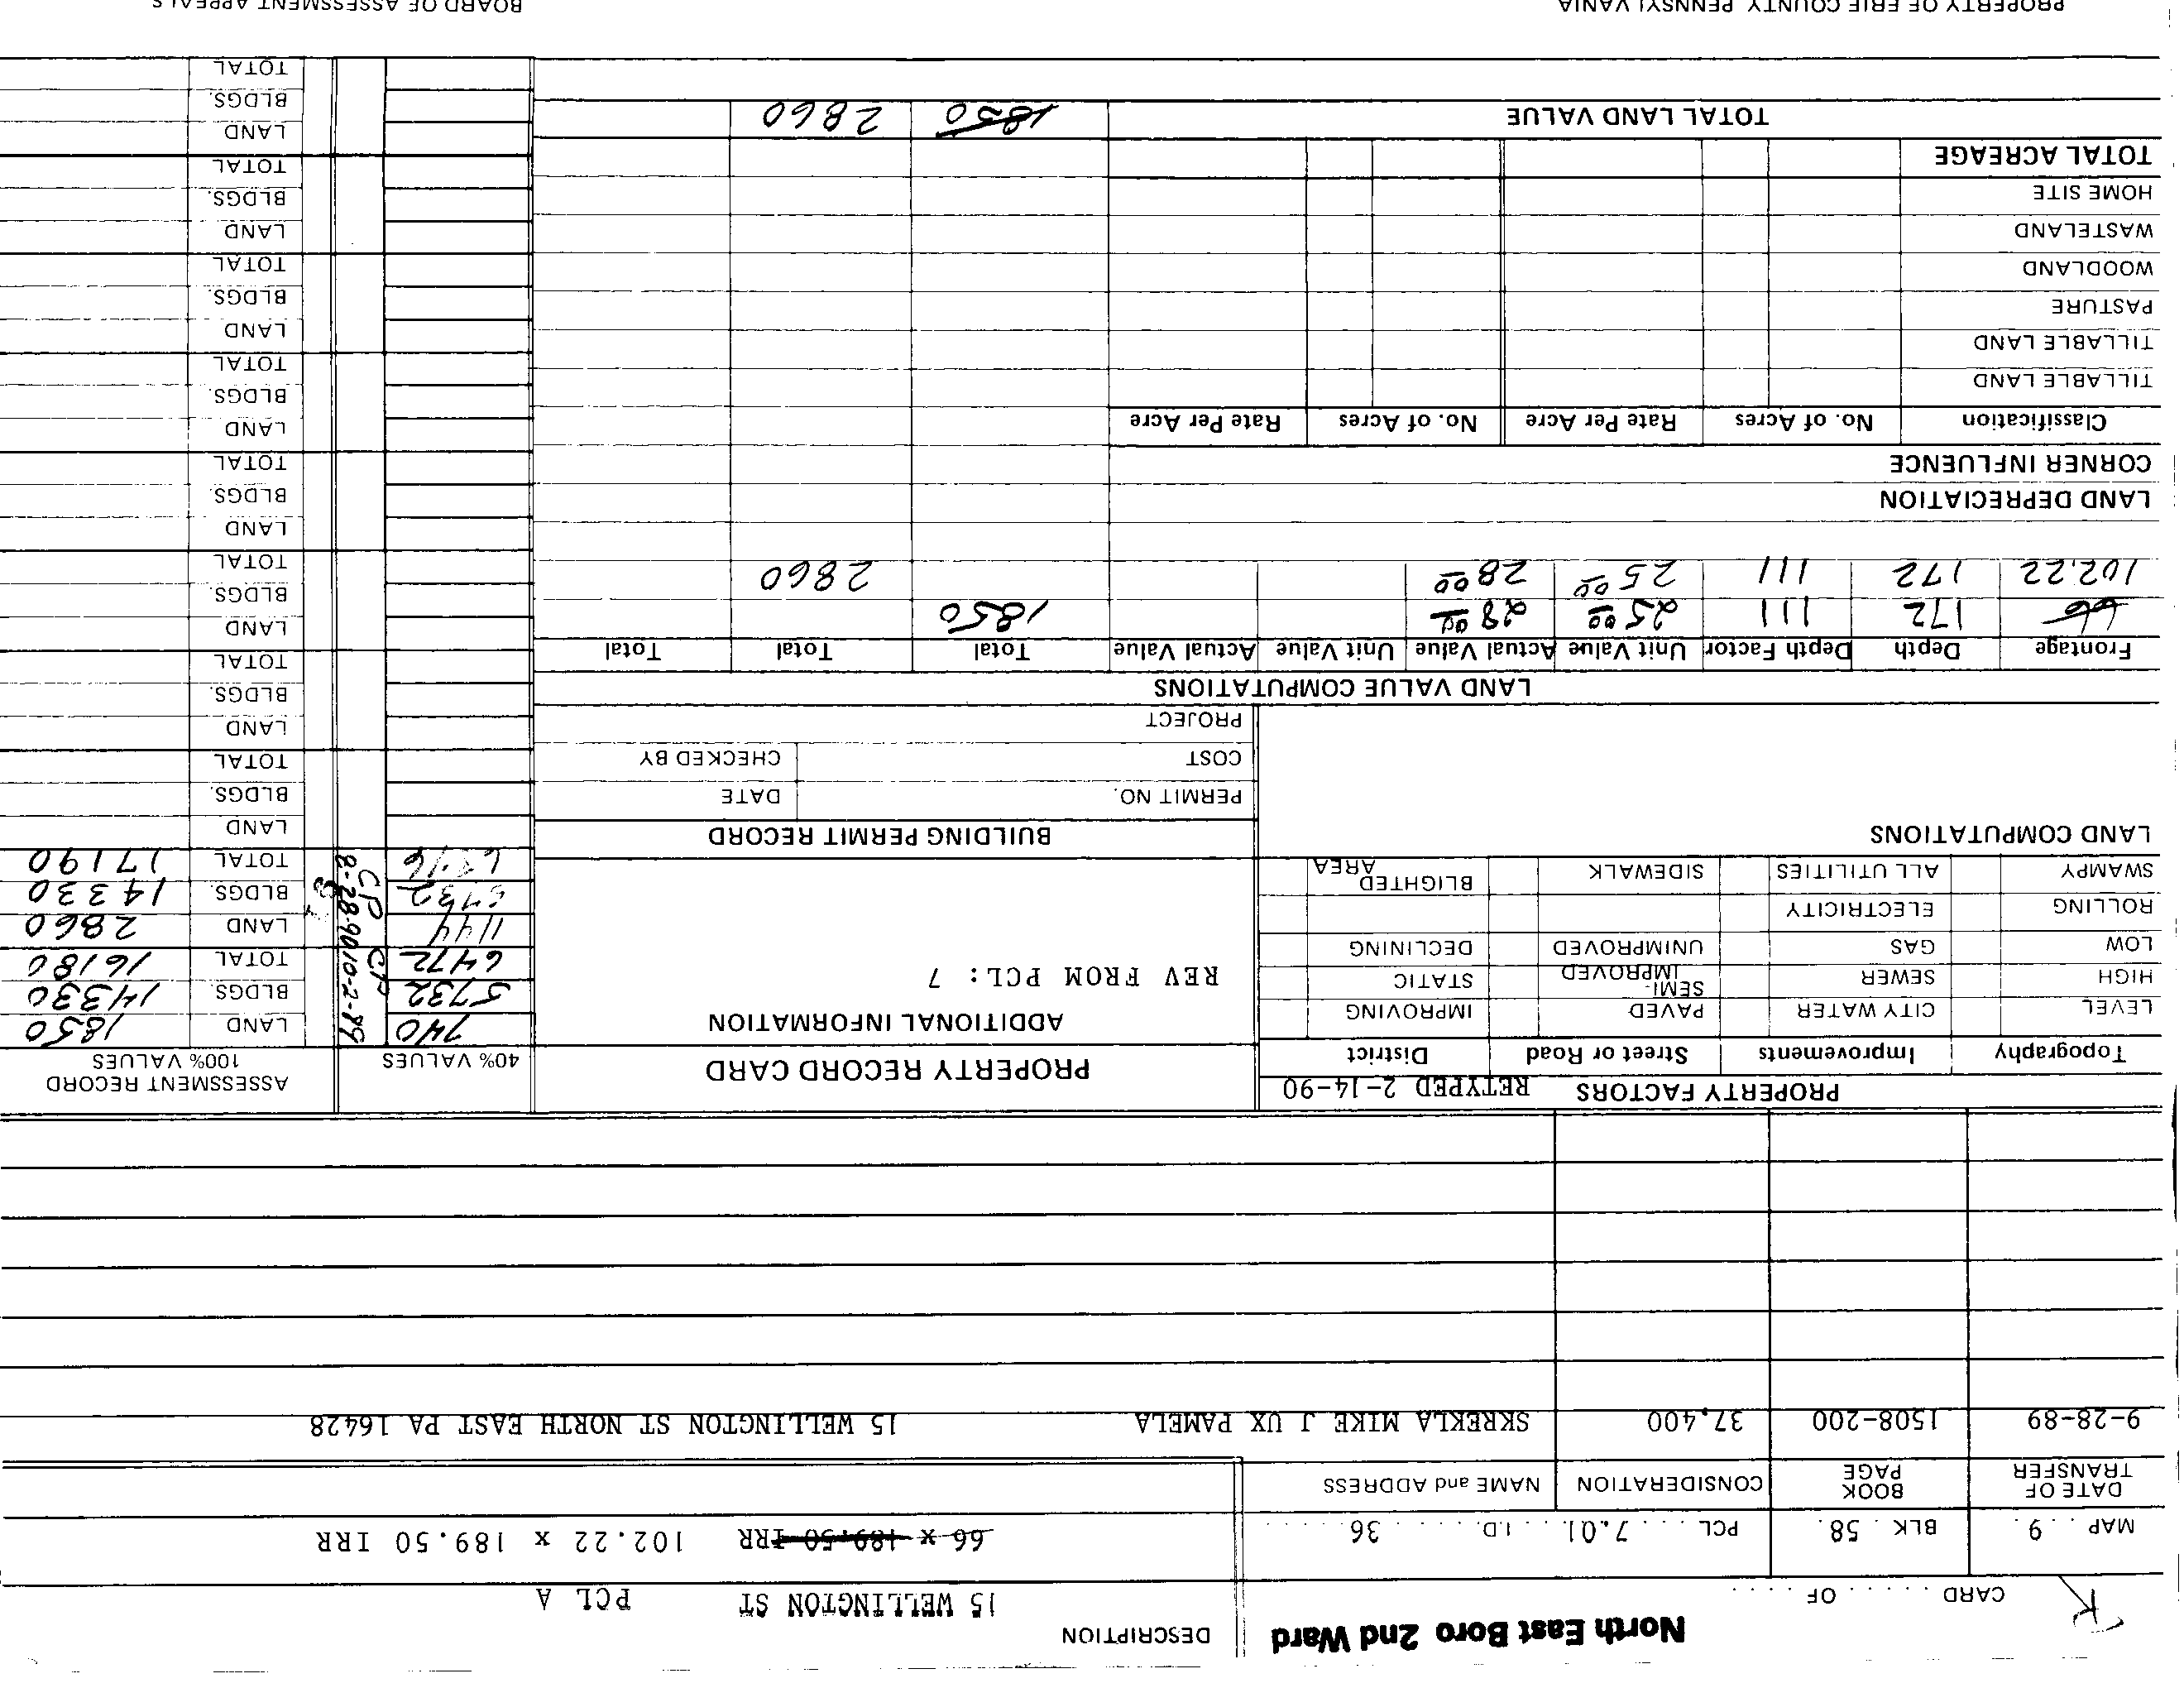 North East Boro 2nd Ward
DESCRIPTION
CARD . . . . . OF . . . . .
15 WELLINGTON ST PCL A
MAP . . 9 . BLK . 58 . PCL . . . . 7.01 . . . I.D. . . . . . 36 . . . . . .
66 x 189.50 IRR 102.22 x 189.50 IRR
DATE OF TRANSFER BOOK PAGE CONSIDERATION NAME and ADDRESS
9-28-89 1508-200 37,400 SKREKLA MIKE J UX PAMELA 15 WELLINGTON ST NORTH EAST PA 16428
PROPERTY FACTORS RETYPED 2-14-90
PROPERTY RECORD CARD
40% VALUES
ASSESSMENT RECORD
100% VALUES
Topography Improvements Street or Road District
ADDITIONAL INFORMATION
LEVEL CITY WATER PAVED IMPROVING
HIGH SEWER SEMI-IMPROVED STATIC
REV FROM PCL: 7
LOW GAS UNIMPROVED DECLINING
ROLLING ELECTRICITY
SWAMPY ALL UTILITIES SIDEWALK BLIGHTED AREA
740 LAND 1850
5732 BLDGS. 14330
6472 TOTAL 16180
CP 10-2-89
1144 LAND 2860
5732 BLDGS. 14330
TOTAL 17190
CP 8-28-90
LAND COMPUTATIONS
BUILDING PERMIT RECORD
PERMIT NO. DATE
COST CHECKED BY
PROJECT
LAND
BLDGS.
TOTAL
LAND VALUE COMPUTATIONS
Frontage Depth Depth Factor Unit Value Actual Value Unit Value Actual Value Total Total Total
66 172 111 25 00 28 00 1850
102.22 172 111 25 00 28 00 2860
LAND
BLDGS.
TOTAL
LAND
BLDGS.
TOTAL
LAND DEPRECIATION
CORNER INFLUENCE
Classification No. of Acres Rate Per Acre No. of Acres Rate Per Acre
TILLABLE LAND
TILLABLE LAND
PASTURE
WOODLAND
WASTELAND
HOME SITE
TOTAL ACREAGE
TOTAL LAND VALUE 1850 2860
LAND
BLDGS.
TOTAL
LAND
BLDGS.
TOTAL
LAND
BLDGS.
TOTAL
LAND
BLDGS.
TOTAL
LAND
BLDGS.
TOTAL
PROPERTY OF ERIE COUNTY PENNSYLVANIA
BOARD OF ASSESSMENT APPEALS